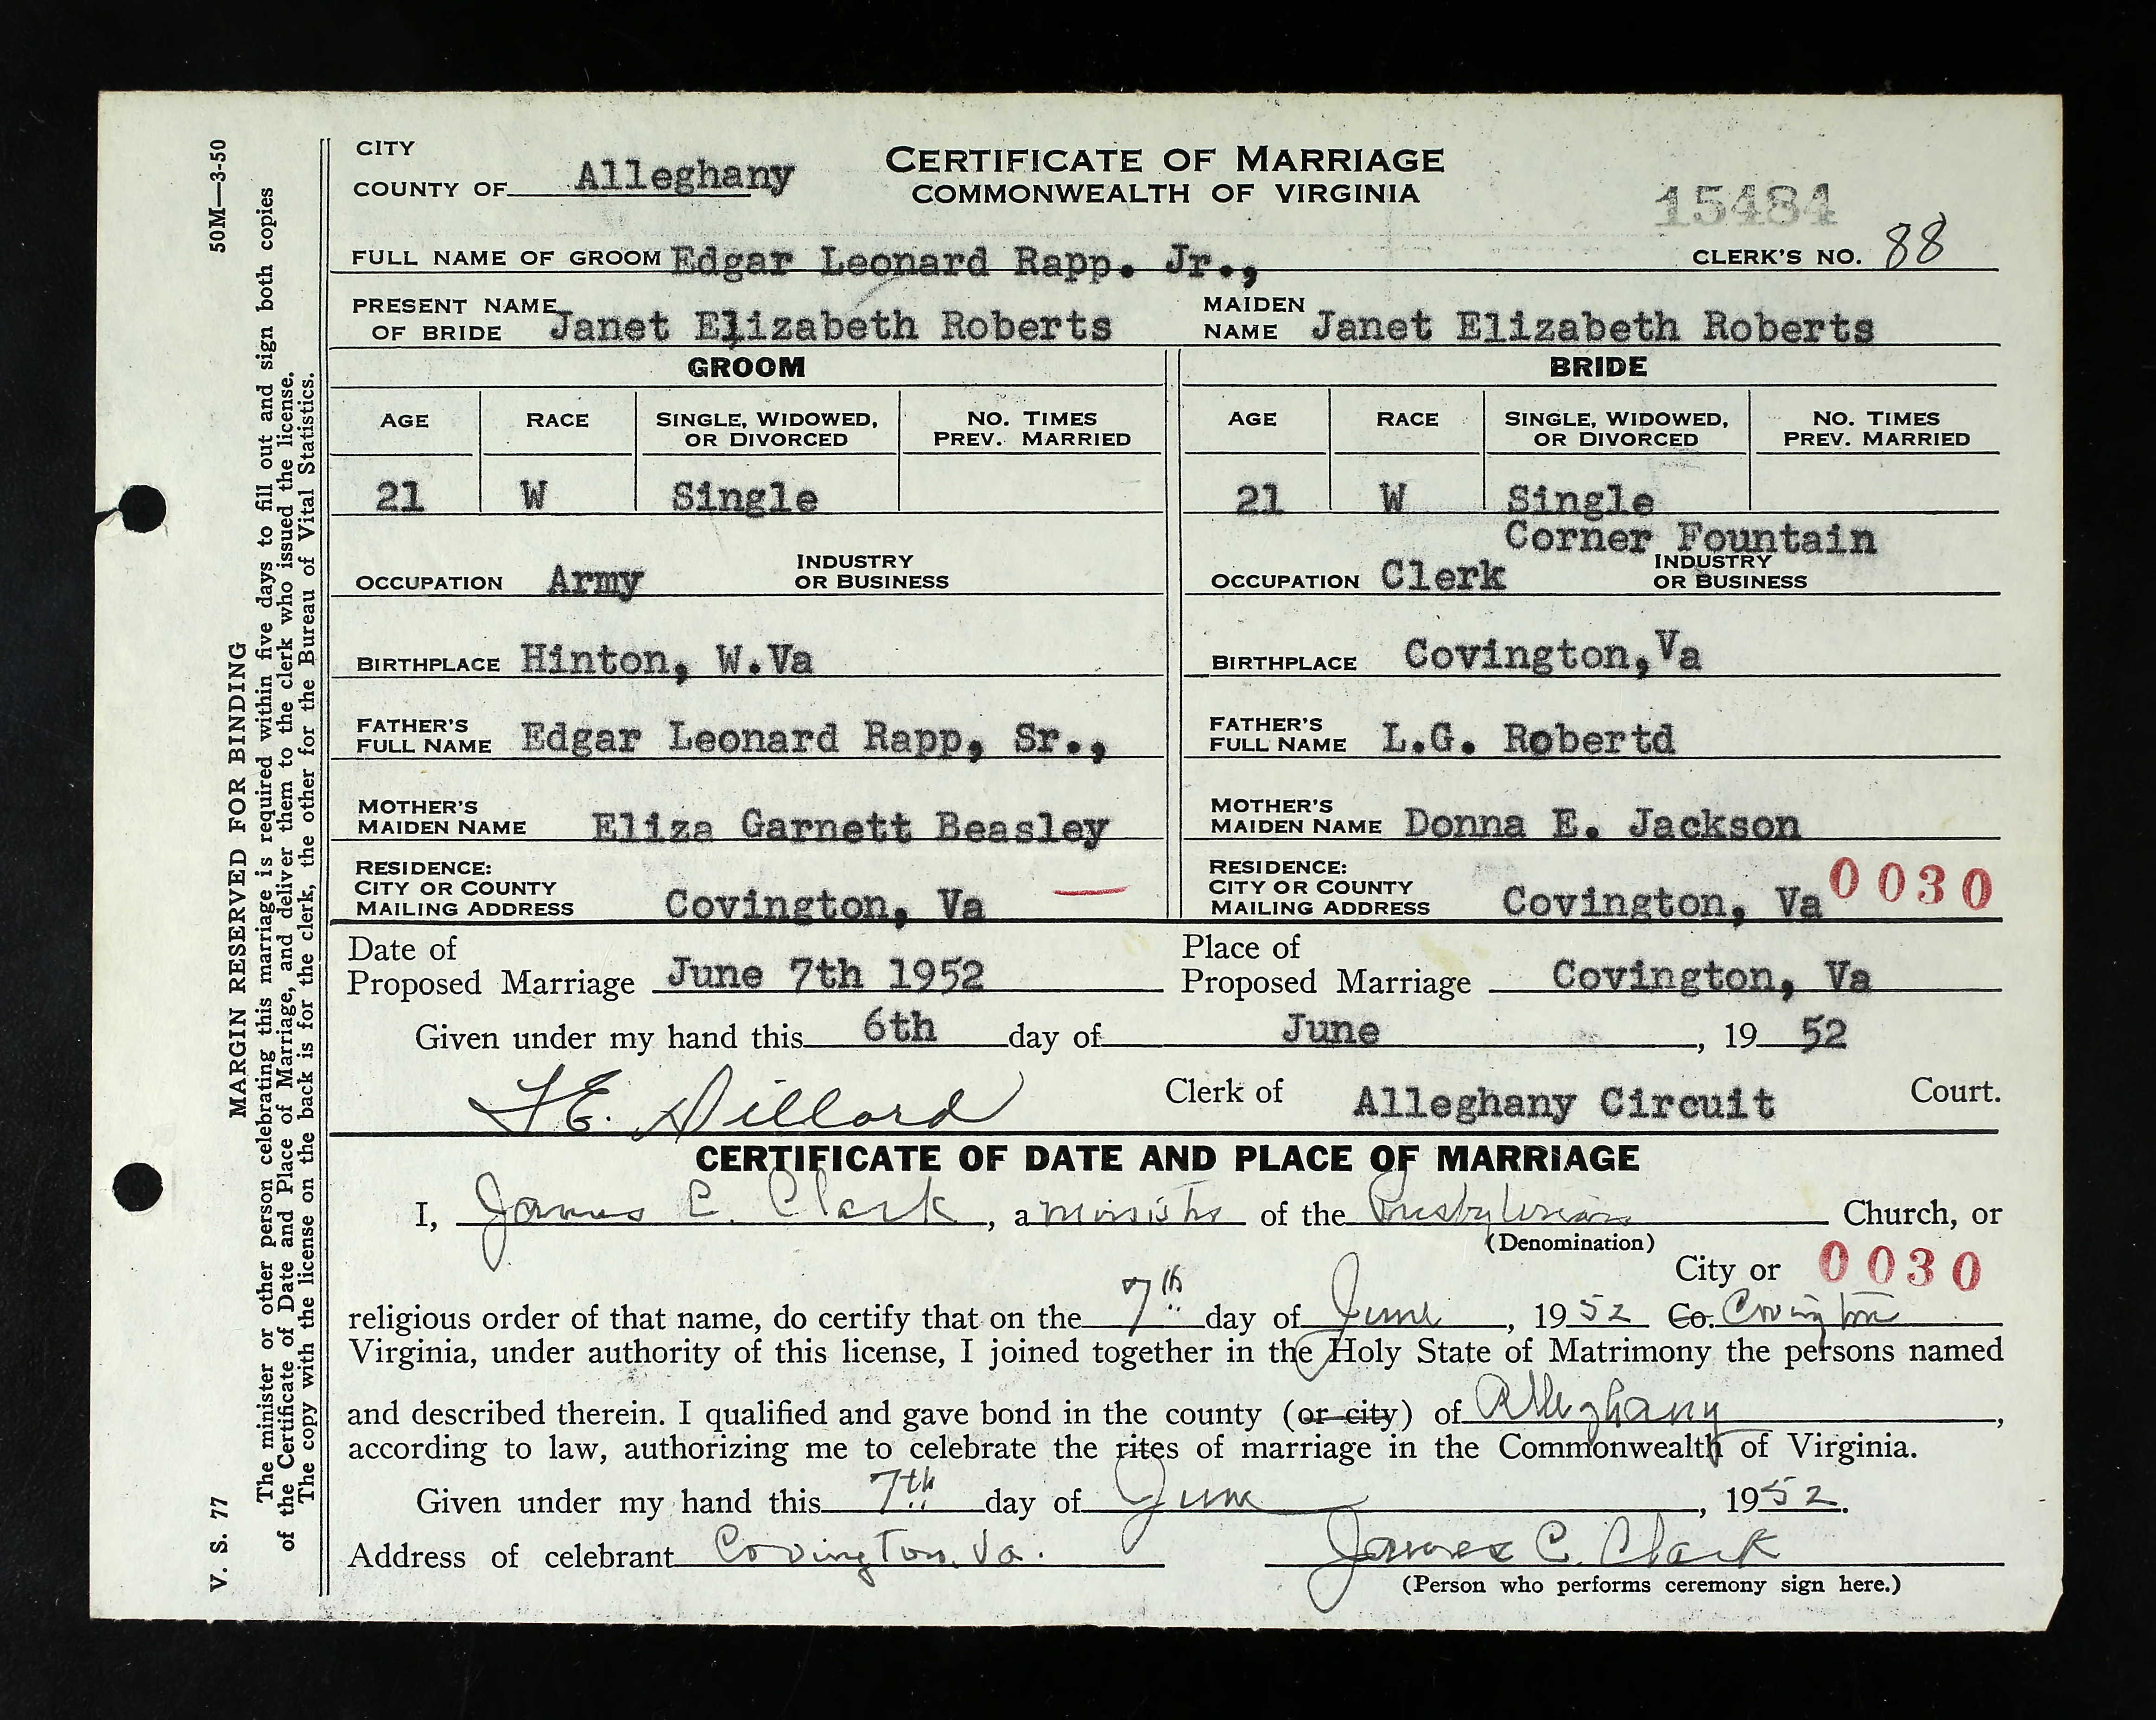 50M—3-50
MARGIN RESERVED FOR BINDING
The minister or other person celebrating this marriage is required within five days to fill out and sign both copies
of the Certificate of Date and Place of Marriage, and deliver them to the clerk who issued the license.
The copy with the license on the back is for the clerk, the other for the Bureau of Vital Statistics.
V. S. 77
CITY
COUNTY OF Alleghany
CERTIFICATE OF MARRIAGE
COMMONWEALTH OF VIRGINIA
15484
FULL NAME OF GROOM Edgar Leonard Rapp. Jr., CLERK'S NO. 88
PRESENT NAME OF BRIDE Janet Elizabeth Roberts MAIDEN NAME Janet Elizabeth Roberts
GROOM BRIDE
AGE RACE SINGLE, WIDOWED, OR DIVORCED NO. TIMES PREV. MARRIED AGE RACE SINGLE, WIDOWED, OR DIVORCED NO. TIMES PREV. MARRIED
21 W Single 21 W Single
Corner Fountain
OCCUPATION Army INDUSTRY OR BUSINESS OCCUPATION Clerk INDUSTRY OR BUSINESS
BIRTHPLACE Hinton, W.Va BIRTHPLACE Covington, Va
FATHER'S FULL NAME Edgar Leonard Rapp, Sr., FATHER'S FULL NAME L.G. Robertd
MOTHER'S MAIDEN NAME Eliza Garnett Beasley MOTHER'S MAIDEN NAME Donna E. Jackson
RESIDENCE: CITY OR COUNTY MAILING ADDRESS Covington, Va RESIDENCE: CITY OR COUNTY MAILING ADDRESS Covington, Va 0030
Date of Proposed Marriage June 7th 1952 Place of Proposed Marriage Covington, Va
Given under my hand this 6th day of June, 19 52
F.E. Dillard Clerk of Alleghany Circuit Court.
CERTIFICATE OF DATE AND PLACE OF MARRIAGE
I, James C. Clark, a minister of the Presbyterian Church, or
(Denomination)
City or 0030
religious order of that name, do certify that on the 7th day of June, 1952 Co. Covington
Virginia, under authority of this license, I joined together in the Holy State of Matrimony the persons named
and described therein. I qualified and gave bond in the county (or city) of Alleghany,
according to law, authorizing me to celebrate the rites of marriage in the Commonwealth of Virginia.
Given under my hand this 7th day of June, 1952.
Address of celebrant Covington, Va. James C. Clark
(Person who performs ceremony sign here.)